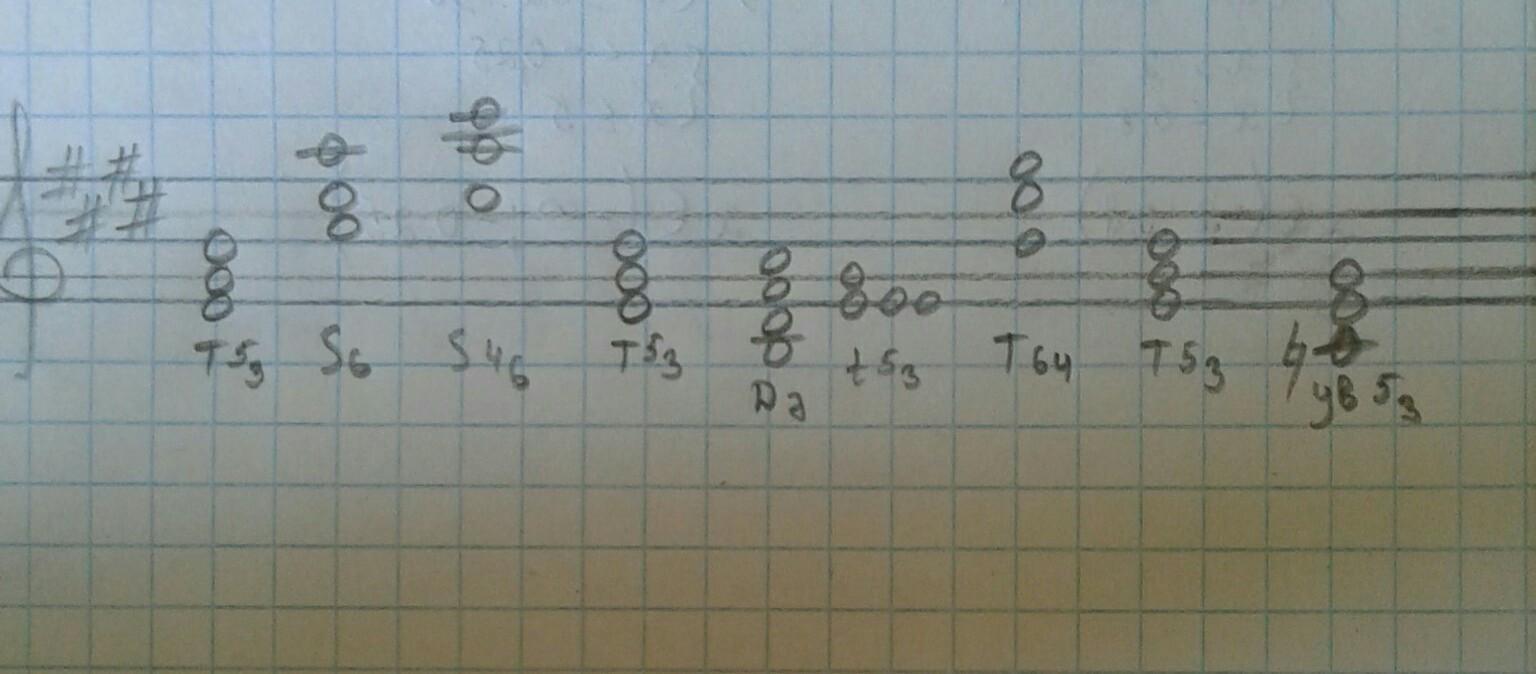 T53 S6 S46 T53 D2 t53 T64 T53 ув53